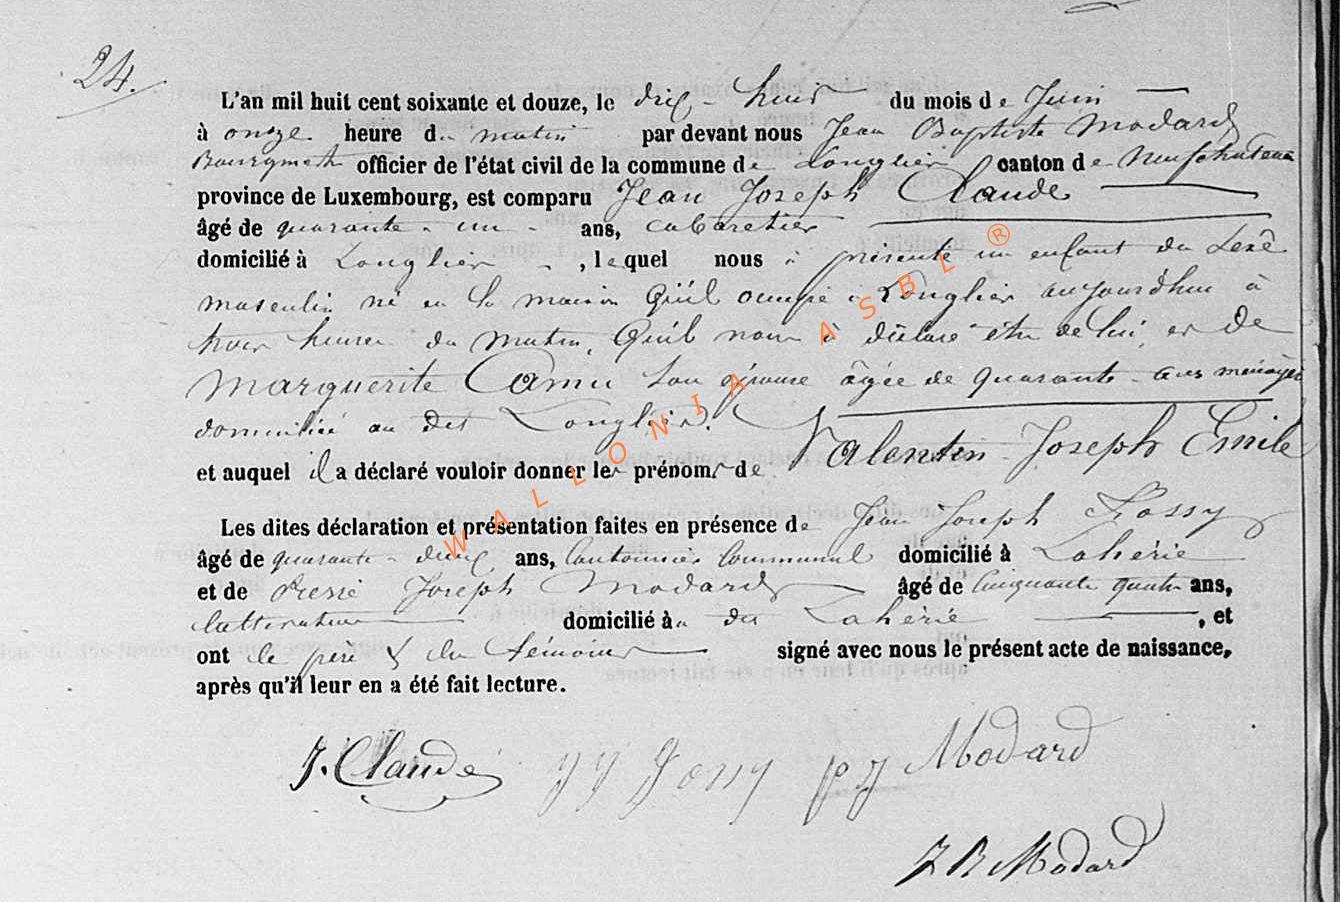 24.
L'an mil huit cent soixante et douze, le dix-huit du mois de Juin
à onze heure du matin par devant nous Jean Baptiste Modard
Bourgmestre officier de l'état civil de la commune de Longlier canton de Neufchateau
province de Luxembourg, est comparu Jean Joseph Claude
âgé de quarante-un ans, cabaretier
domicilié à Longlier, lequel nous à présenté un enfant du sexe
masculin né en la maison qu'il occupe à Longlier aujourdhui à
heures du matin, qu'il nous à déclaré être de lui, et de
Marguerite Camu son épouse âgée de quarante ans ménagère
domiciliée au dit Longlier.
et auquel il a déclaré vouloir donner les prénoms de Valentin Joseph Emile
Les dites déclaration et présentation faites en présence de Jean Joseph
âgé de quarante-deux ans, Cantonnier Communal domicilié à Lahérie
et de Pierre Joseph Modard âgé de Cinquante quatre ans,
Cultivateur domicilié à au dit Lahérie, et
ont le père & les témoins signé avec nous le présent acte de naissance,
après qu'il leur en a été fait lecture.
J. Claude J J P J Modard
J B Modard
WALLONIA ASBL ®